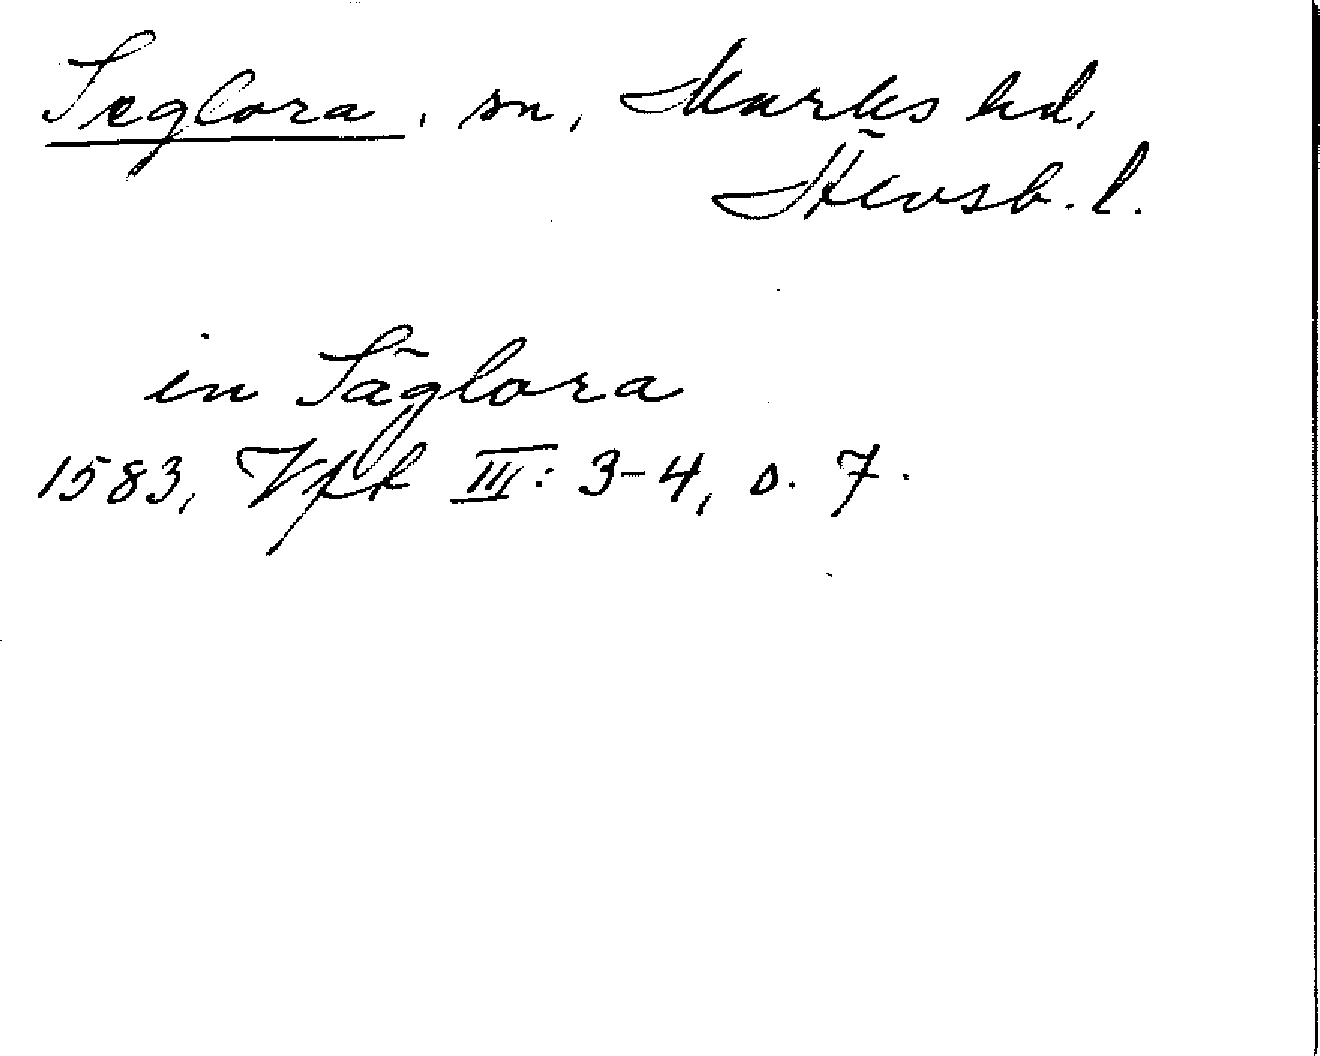 Seglora, sn, Marks hd,
Älvsb. l.
in Säglora
1583, Vfk III: 3-4, s. 7.